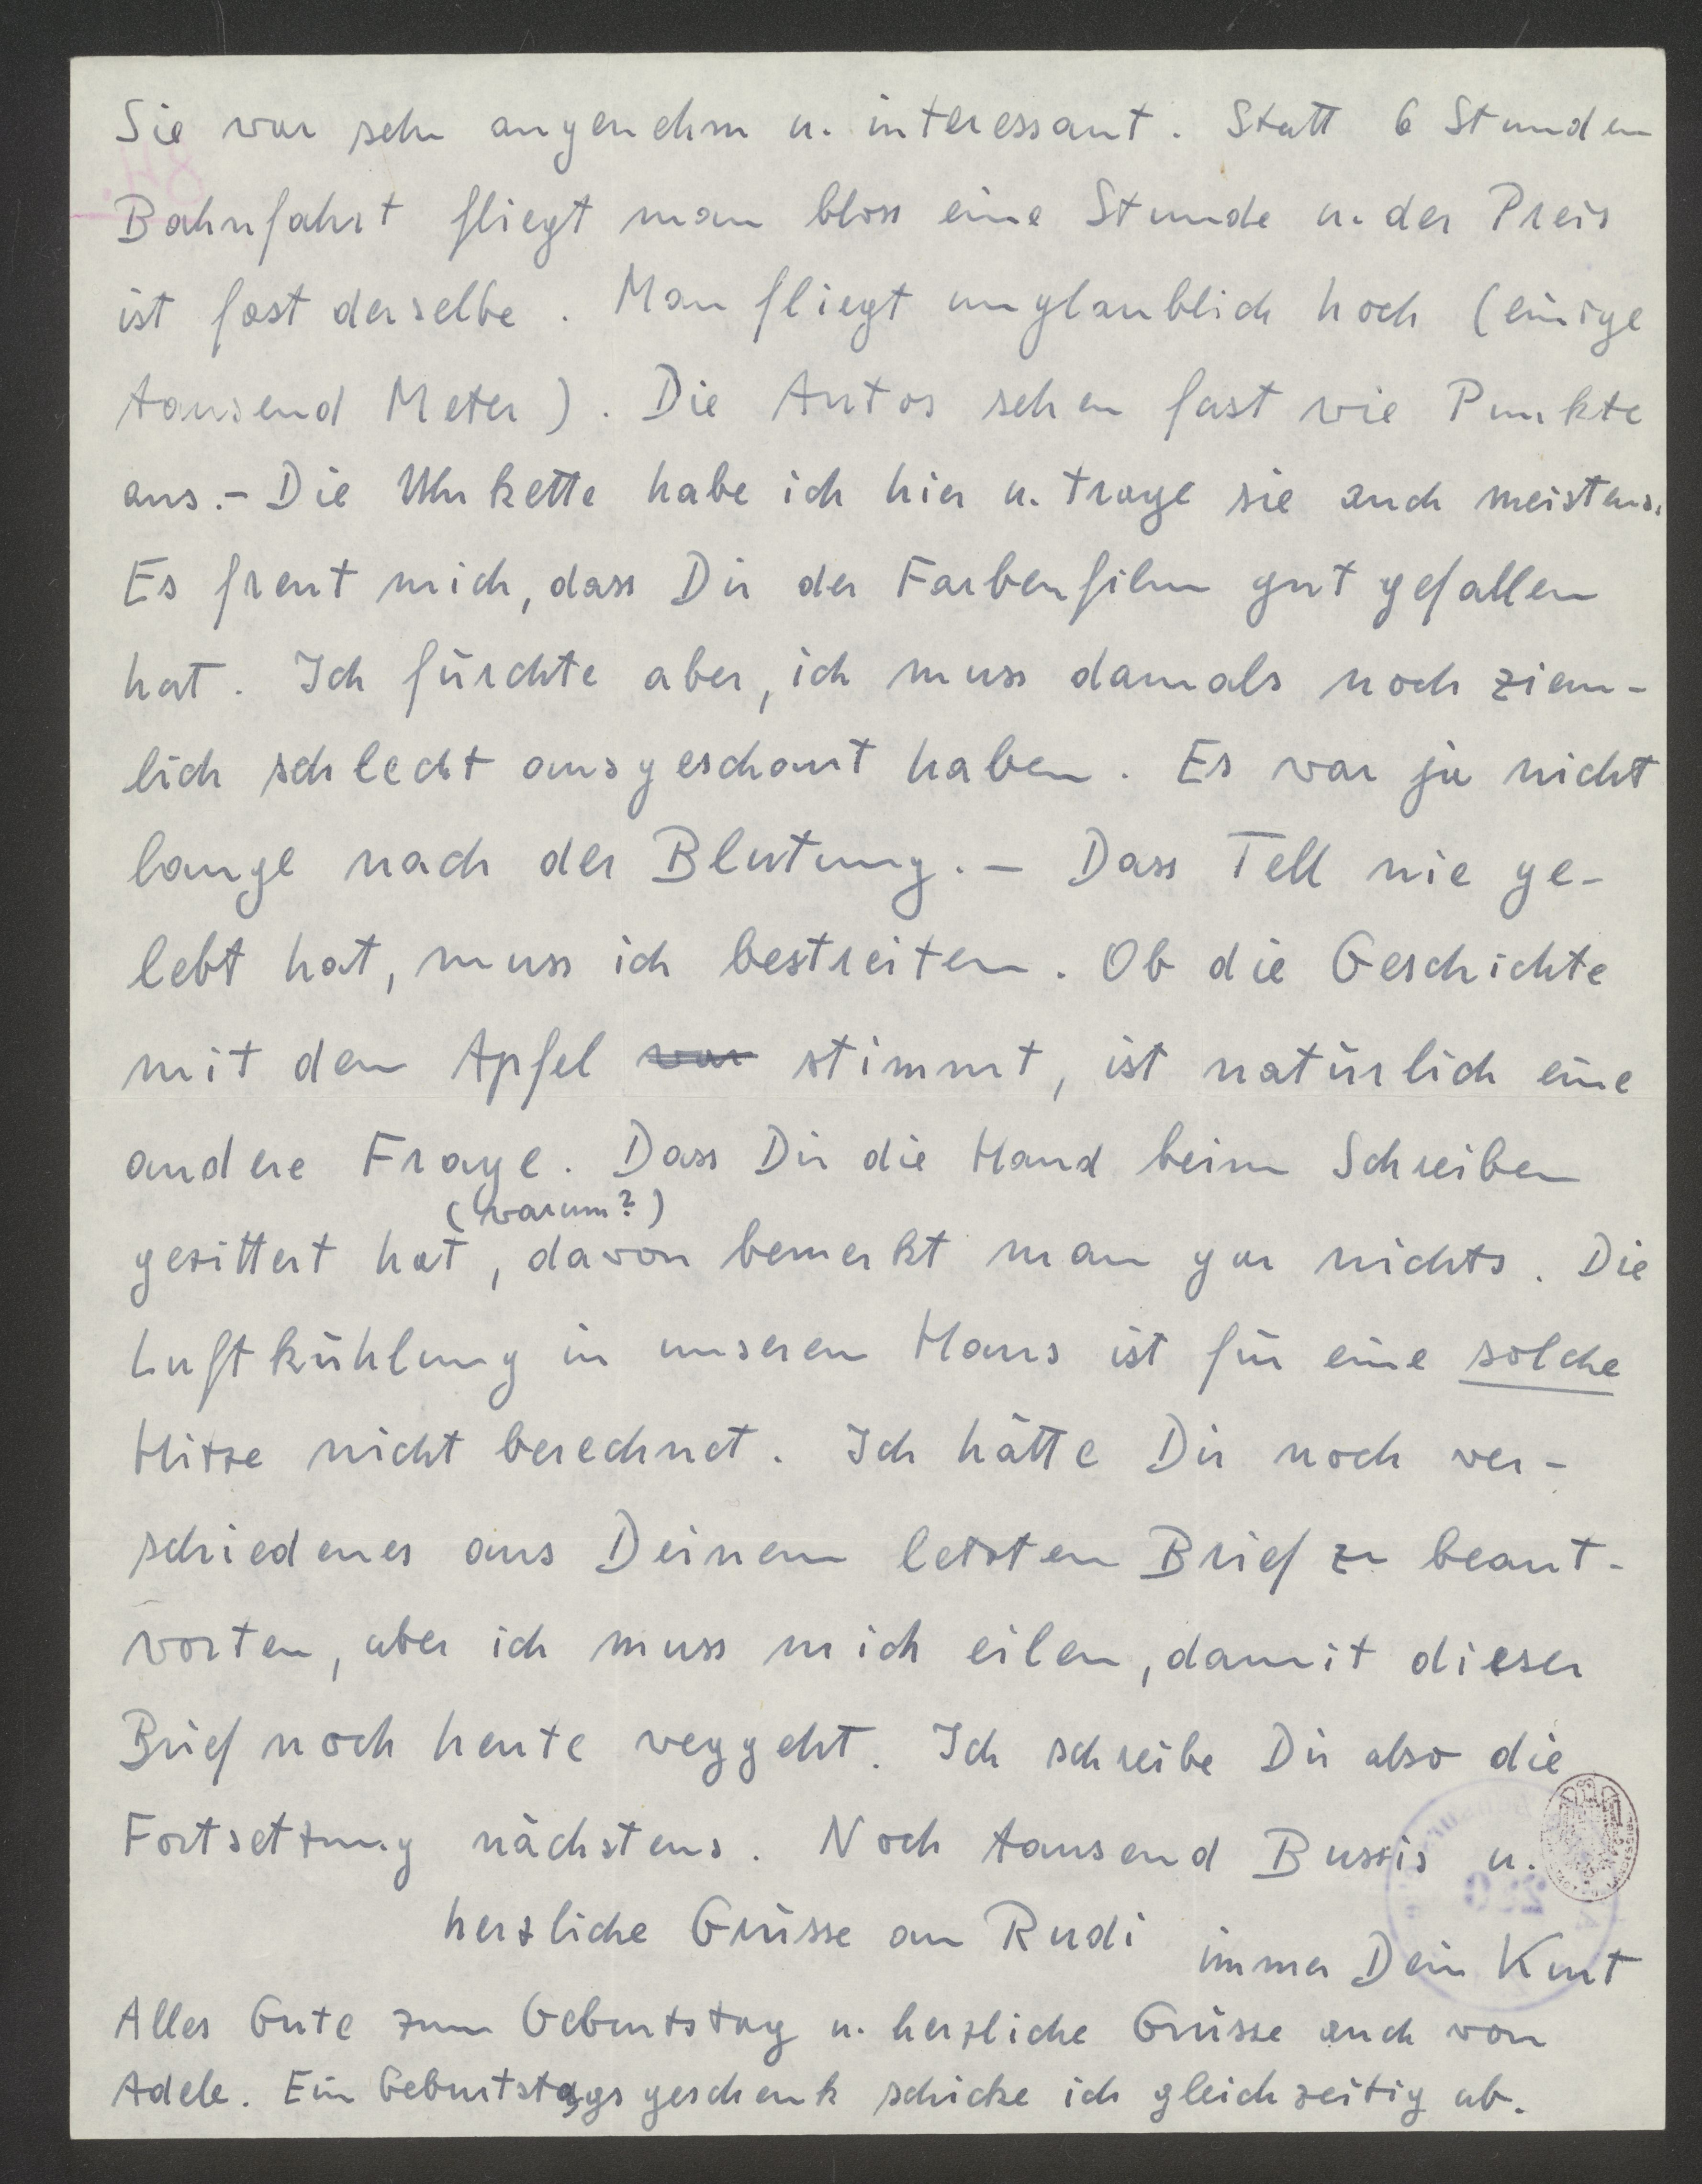 Sie war sehr angenehm u. interessant. Statt 6 Stunden
Bahnfahrt fliegt man bloss eine Stunde u. der Preis
ist fast derselbe. Man fliegt unglaublich hoch (einige
tausend Meter). Die Autos sehen fast wie Punkte
aus.- Die Uhrkette habe ich hier u. trage sie auch meistens.
Es freut mich, dass Dir der Farbenfilm gut gefallen
hat. Ich fürchte aber, ich muss damals noch ziem-
lich schlecht ausgeschaut haben. Es war ja nicht
lange nach der Blutung. - Dass Tell nie ge-
lebt hat, muss ich bestreiten. Ob die Geschichte
mit dem Apfel war stimmt, ist natürlich eine
andere Frage. Dass Dir die Hand beim Schreiben
(warum?)
gezittert hat, davon bemerkt man gar nichts. Die
Luftkühlung in unserem Haus ist für eine solche
Hitze nicht berechnet. Ich hätte Dir noch ver-
schiedenes aus Deinem letzten Brief zu beant-
worten, aber ich muss mich eilen, damit dieser
Brief noch heute weggeht. Ich schreibe Dir also die
Fortsetzung nächstens. Noch tausend Bussis u.
herzliche Grüsse an Rudi immer Dein Kurt
Alles Gute zum Geburtstag u. herzliche Grüsse auch von
Adele. Ein Geburtstagsgeschenk schicke ich gleichzeitig ab.